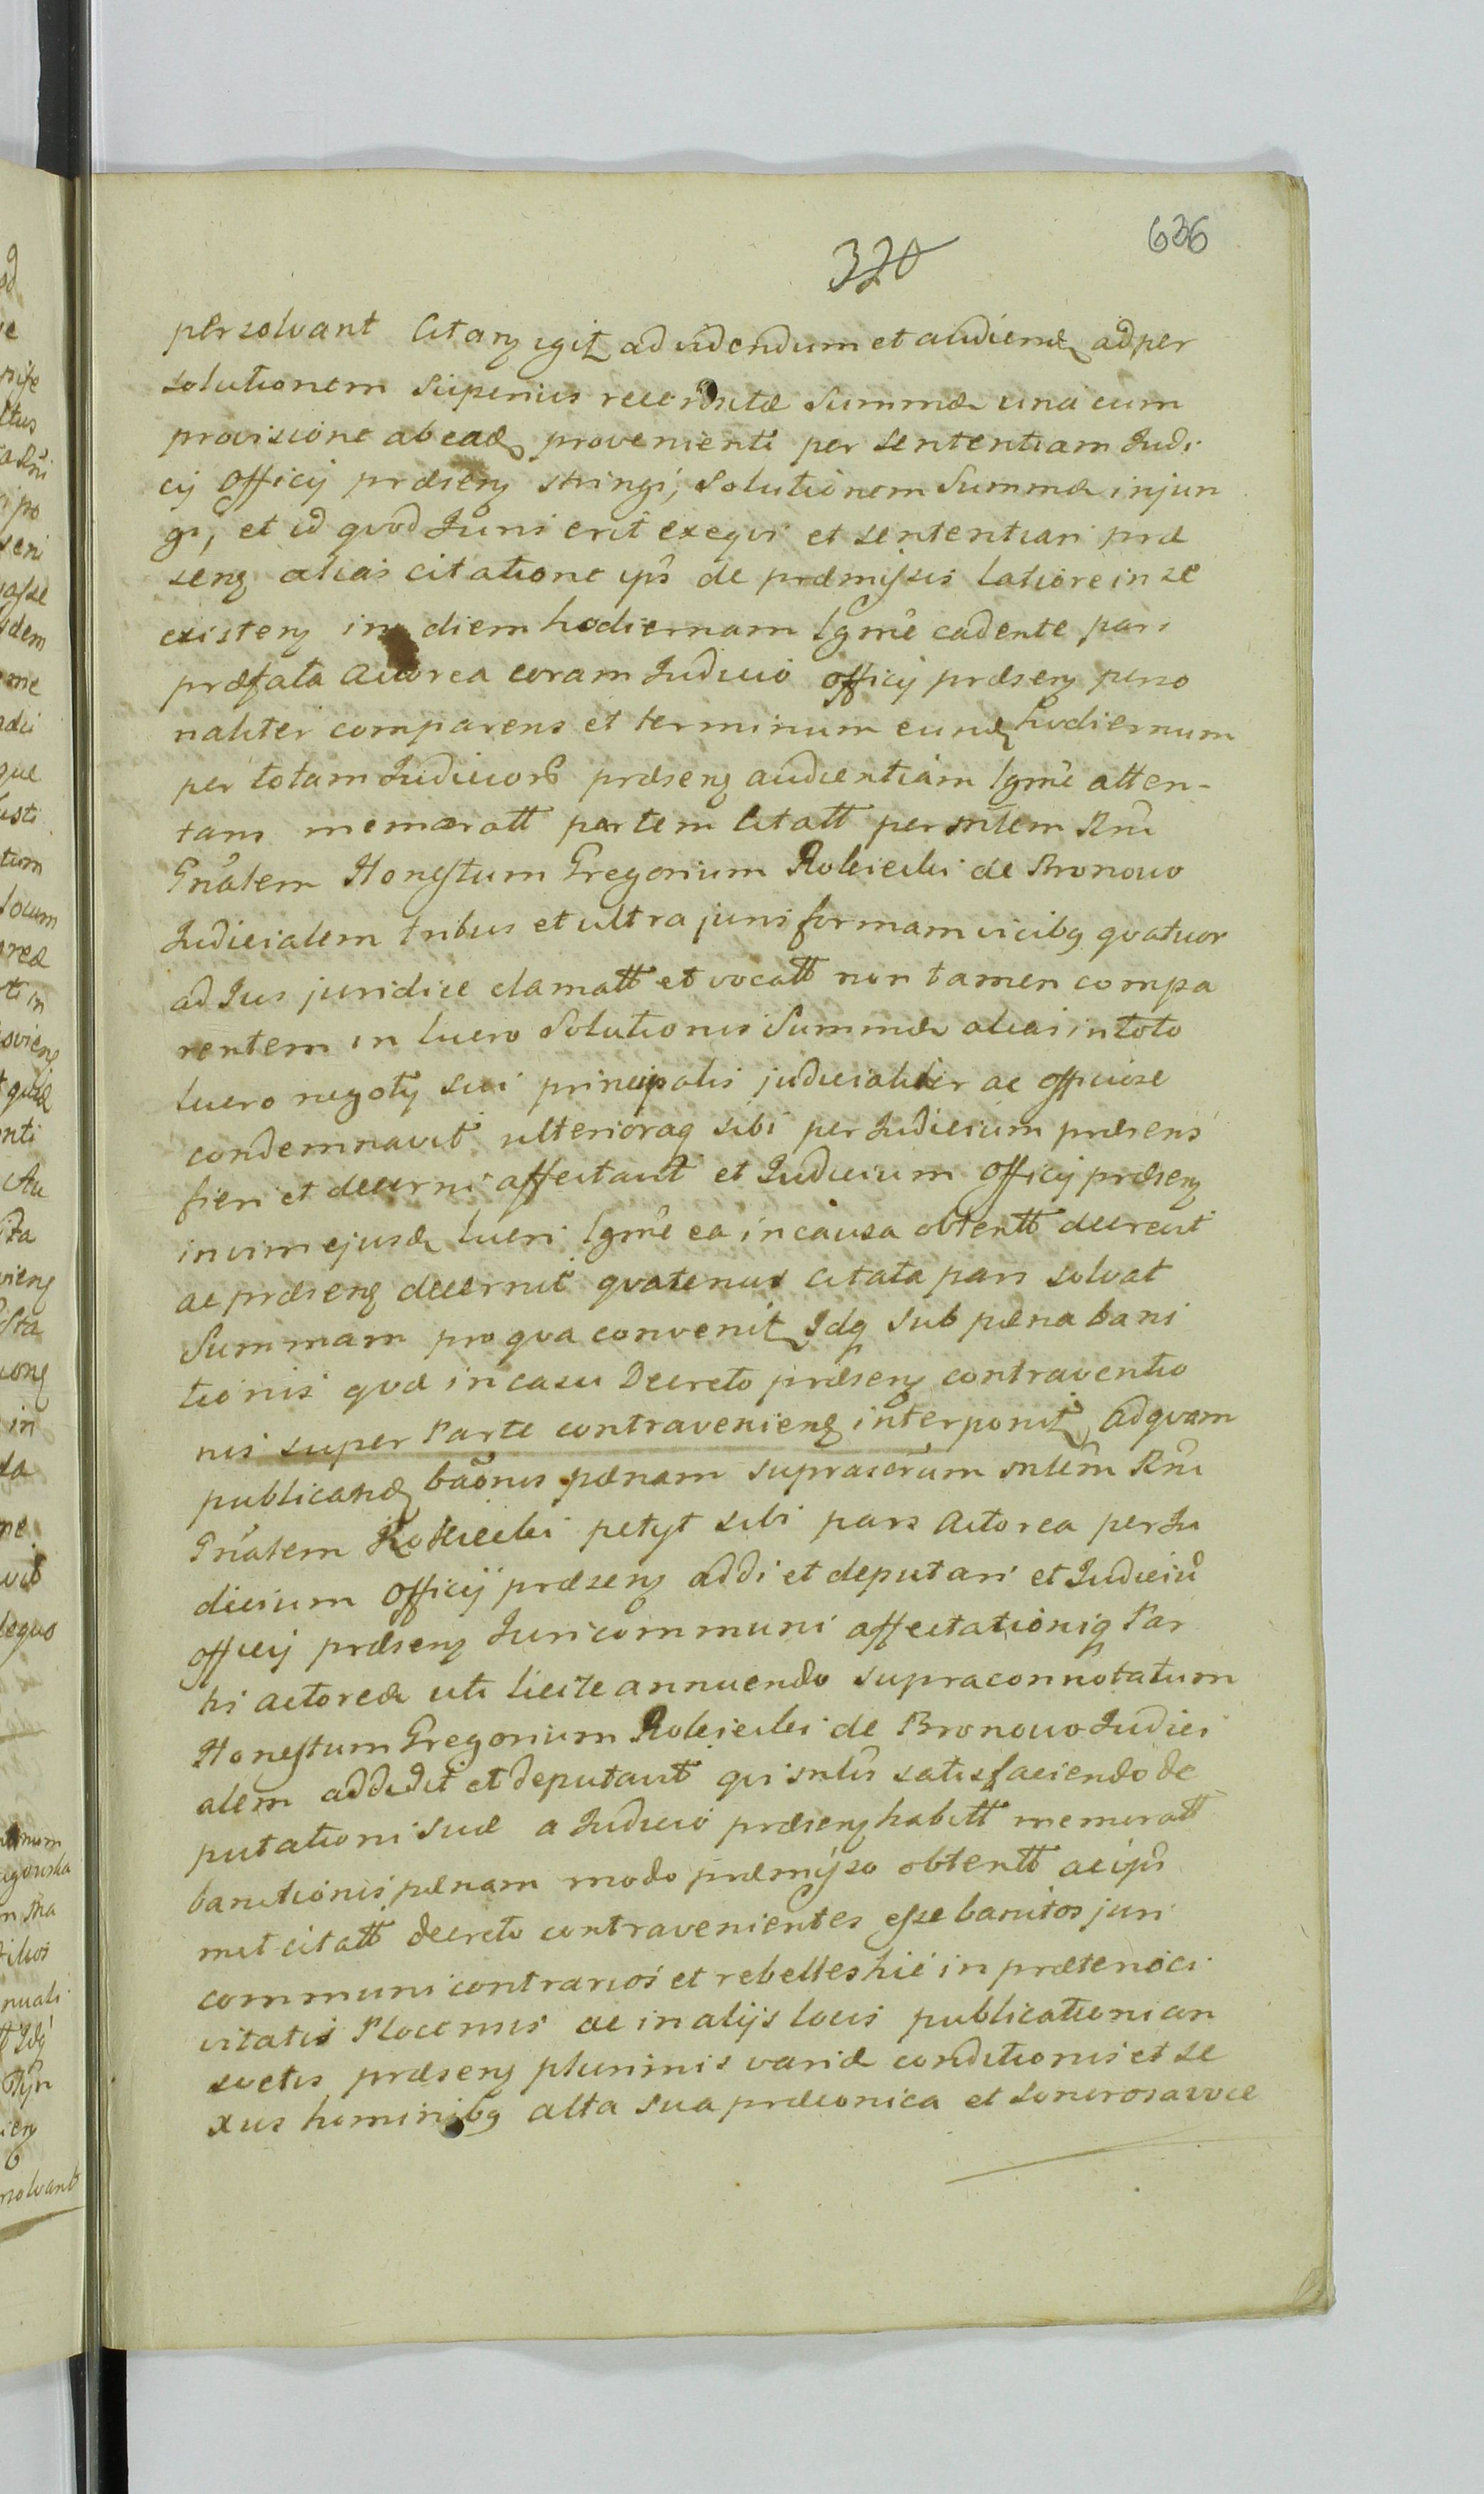 636
320
persolvant Citany igit ad videndum et audiend ad per
solutionem Superius recordatæ Summæ una cum
provisione ab ead provenienti per sententiam Judi
cij Officij præseng stringi, Solutionem Summæ injun
gi, et id quod Juris erit exequi et sententiari præ
seng alias citatione ips de præmissis latiore in se
existeng in diem hodiernam lgme cadente pars
præfata Actorea coram Judicio officij præseng perso
naliter comparens et terminum eund hodiernum
per totam Judicior præseng audientiam lgme atten-
tans memoratt partem Citatt per mlem Rni
Gnalem Honestum Gregorium Rokicki de Bronowo
Judicialem tribus et ultra juris formam vicibq quatuor
ad Jus juridice clamatt et vocatt non tamen compa
rentem in lucro Solutionis Summæ alias in toto
lucro negotij sui principalis judicialiter ac officiose
condemnavit ulterioraq sibi per Judicium præsens
fieri et decerni affectavit et Judicium Officij præseng
in vim ejusd lucri lgme ea in causa obtentt decrevit
ac præseng decernit quatenus Citata pars solvat
Summam pro qua convenit Idq sub pæna bani
tionis quæ in casu Decreto præseng contraventio
nis super Parte contravenieng interponit, Ad quam
publicand baonis pænam suprascrum mlem Rni
Gnalem Rokicki petyt sibi pars Actorea per Ju
dicium Officij præseng addi et deputari et Judiciu
officij præseng Juri communi affectationiq Par
tis actoreæ uti licite annuendo supraconnotatum
Honestum Gregorium Rokicki de Bronowo Judici
alem addidit et deputavit qui mlis satisfaciendo de
putationi suæ a Judicio præseng habitt memoratt
banitionis pænam modo præmisso obtentt ac ips
met citatt decreto contravenientes esse banitos juri
communi contrarios et rebelles hic in prætorio ci
vitatis Plocensis ac in alijs locis publicationi con
svetis præseng plurimis variæ conditionis et se
xus hominibq alta sua præconica et sonorosa voce